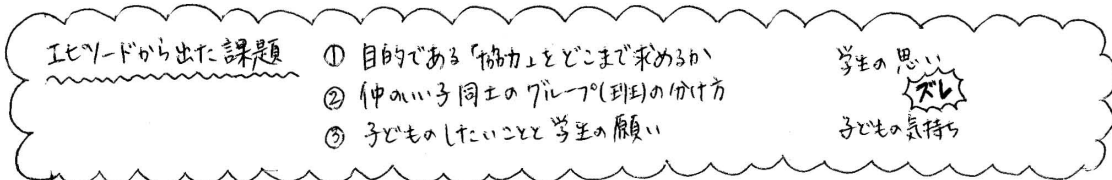 エピソードから出た課題
① 目的である「協力」をどこまで求めるか
② 仲のいい子同士のグループ(班)の分け方
③ 子どものしたいことと学生の願い
学生の思い
ズレ
子どもの気持ち